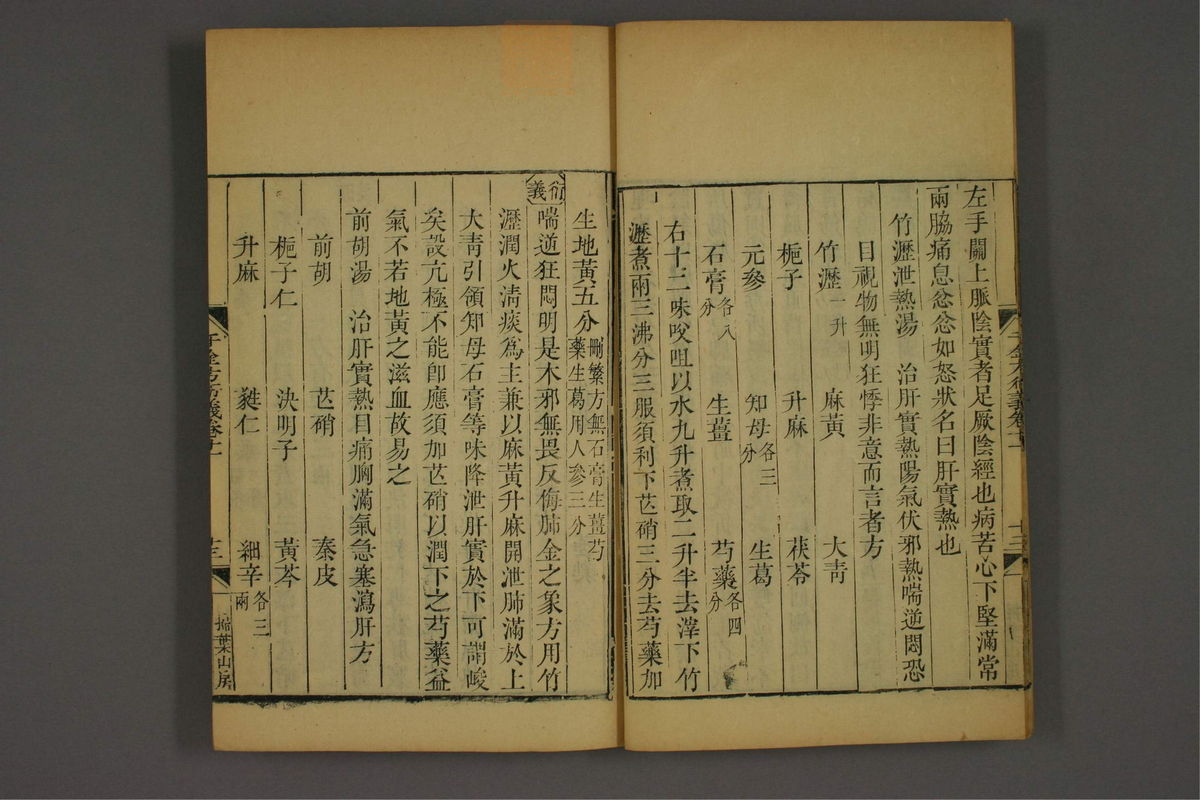 左手關上脈陰實者足厥陰經也病苦心下堅滿常
兩脇痛息忿忿如怒狀名曰肝實熱也
竹瀝泄熱湯 治肝實熱陽氣伏邪熱喘逆悶恐
目視物無明狂悸非意而言者方
竹瀝一升 麻黃 大靑
梔子 升麻 茯苓
元參 知母各三分 生葛
石膏各八分 生薑 芍藥各四分
右十二味㕮咀以水九升煮取二升半去滓下竹
瀝煮兩三沸分三服須利下芒硝三分去芍藥加
生地黃五分刪繁方無石膏生薑芍藥生葛用人參三分
衍義
喘逆狂悶明是木邪無畏反侮肺金之象方用竹
瀝潤火淸痰爲主兼以麻黃升麻開泄肺滿於上
大靑引領知母石膏等味降泄肝實於下可謂峻
矣設亢極不能卽應須加芒硝以潤下之芍藥益
氣不若地黃之滋血故易之
前胡湯 治肝實熱目痛胸滿氣急塞瀉肝方
前胡 芒硝 秦皮
梔子仁 決明子 黃芩
升麻 蕤仁 細辛各三兩
千金方衍義卷十一
掃葉山房